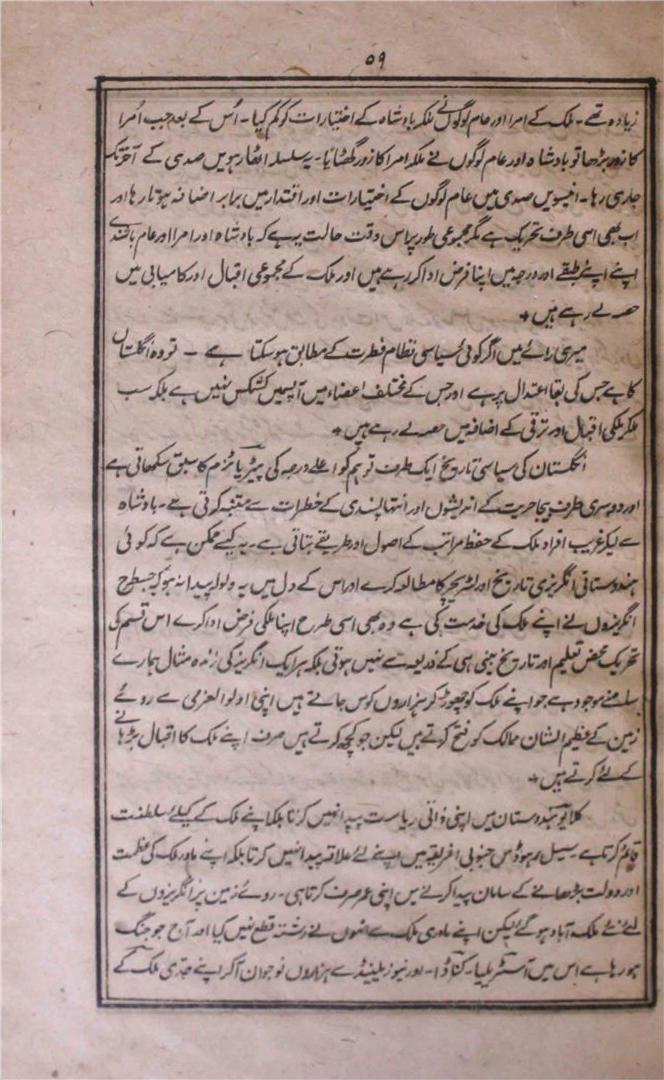 ۵۹
زیادہ تھے ۔ ملک کے امرا اور عام لوگوں نے ملکر بادشاہ کے اختیارات کو کم کیا ۔ اُس کے بعد جب اُمرا
کا زور بڑھا تو بادشاہ اور عام لوگوں نے ملکر امرا کا زور گھٹایا ۔ یہ سلسلہ اٹھارہویں صدی کے آخر تک
جاری رہا ۔ انیسویں صدی میں عام لوگوں کے اختیارات اور اقتدار میں برابر اضافہ ہوتا رہا اور
اب بھی اسی طرف تحریک ہے مگر مجموعی طور پر اس وقت حالت یہ ہے کہ بادشاہ اور امرا اور عام باشندے
اپنے اپنے طبقے اور درجہ میں اپنا فرض ادا کر رہے ہیں اور ملک کے مجموعی اقبال اور کامیابی میں
حصہ لے رہے ہیں ٭
میری رائے میں اگر کوئی سیاسی نظام فطرت کے مطابق ہو سکتا ہے ۔ تو وہ انگلستان
کا ہے جس کی بقا اعتدال پر ہے اور جس کے مختلف اعضاء میں آپسمیں کشمکش نہیں ہے بلکہ سب
ملکر ملکی اقبال اور ترقی کے اضافہ میں حصہ لے رہے ہیں ٭
انگلستان کی سیاسی تاریخ ایک طرف تو ہم کو اعلے درجہ کی پیٹریاٹزم کا سبق سکھاتی ہے
اور دوسری طرف بیجا حریت کے اندیشوں اور انتہا پسندی کے خطرات سے متنبہ کرتی ہے ۔ بادشاہ
سے لیکر غریب افراد ملک کے حفظ مراتب کے اصول اور طریقے بتاتی ہے ۔ یہ کیسے ممکن ہے کہ کوئی
ہندوستانی انگریزی تاریخ اور لٹریچر کا مطالعہ کرے اور اس کے دل میں یہ ولولہ پیدا نہ ہو کہ جسطرح
انگریزوں نے اپنے ملک کی خدمت کی ہے وہ بھی اسی طرح اپنا ملکی فرض ادا کرے اس قسم کی
تحریک محض تعلیم اور تاریخ بینی ہی کے ذریعہ سے نہیں ہوتی بلکہ ہر ایک انگریز کی زندہ مثال ہمارے
سامنے موجود ہے جو اپنے ملک کو چھوڑ کر ہزاروں کوس جاتے ہیں اپنی اولوالعزمی سے روئے
زمین کے عظیم الشان ممالک کو فتح کرتے ہیں لیکن جو کچھ کرتے ہیں صرف اپنے ملک کا اقبال بڑھانے
کے لئے کرتے ہیں ٭
کلایو ہندوستان میں اپنی ذاتی ریاست پیدا نہیں کرتا بلکہ اپنے ملک کے کیلئے سلطنت
قائم کرتا ہے سیسل رہوڈس جنوبی افریقہ میں اپنے لئے علاقہ پیدا نہیں کرتا بلکہ اپنے مادر ملک کی عظمت
اور دولت بڑھانے کے سامان پیدا کرنے میں اپنی عمر صرف کرتا ہی ۔ روئے زمین پر انگریزوں کے
نئے نئے ملک آباد ہو گئے لیکن اپنے مادری ملک سے انہوں نے رشتہ قطع نہیں کیا اور آج جو جنگ
ہو رہا ہے اس میں آسٹریلیا ۔ کناڈا ۔ اور نیوزیلینڈ سے ہزاروں نوجوان آ کر اپنے جدی ملک کے